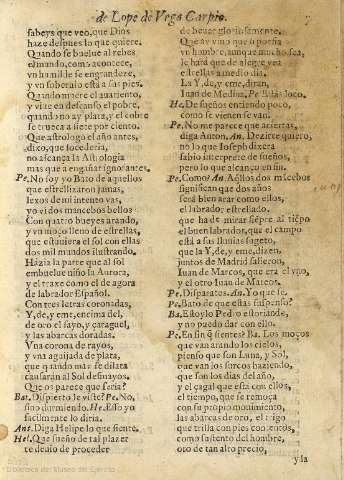 de Lope de Vega Carpio.
sabeys que veo, que Dios
haze despues lo que quiere.
Quando se buelue al rebes
el mundo, como acontece,
vn humilde se engrandeze,
y vn soberuio està a sus pies.
Quando muere el auariento,
y viue en descanso el pobre,
quando no ay plata, y el cobre
se trueca a siete por ciento.
Que astrologo el año antes,
dixo, que sucederia,
no alcança la Astrologia
mas que a engañar ignorantes.
Pe. No soy yo Bato de aquellos
que estrellizaron jamas,
lexos de mi intento vas,
yo vi dos mancebos bellos
Con quatro bueyes arando,
y vn moço lleno de estrellas,
que estuuiera el sol con ellas
dos mil mundos ilustrando.
Hàzia la parte que al sol
embuelue niño la Aurora,
y el traxe como el de agora
de labrador Español.
Con tres letras coronadas,
Y, de, y eme, encima del,
de oro el sayo, y çaraguel,
y las abarcas doradas.
Vna corona de rayos,
y vna aguijada de plata,
que quando mas se dilata
causaràn al Sol desmayos.
Que os parece que seria?
Bat. Dispierto le viste? Pe. No,
sino durmiendo. He. Esso yo
facilmente lo diria.
Ant. Diga Helipe lo que siente.
Hel. Que sueño de tal plazer
te deuio de proceder
de beuer gloriosamente.
Que ay vino que si porfia
vn hombre, aunque mucho sea,
le harà que de alegre vea
estrellas a medio dia.
La Y, de, y eme, diran,
Iuan de Medina. Pe. Estàs loco.
He. De sueños entiendo poco,
como se vienen se van.
Pe. No me parece que aciertas,
diga Anton. An. Dezirte quiero,
no lo que Ioseph dixera
sabio interprete de sueños,
pero lo que alcanço en fin.
Pe. Como? An. Aquellos dos mãcebos
significan que dos años
serà bien arar como ellos,
el labrador, estrellado,
que ha de mirar siẽpre al tiẽpo
el buen labrador, que el campo
està a sus lluuias sugeto,
que la Y, de, y eme, dizen,
juntos de Madrid salieron,
Iuan de Marcos, que era el vno,
y el otro Iuan de Marcos.
Pe. Disparates. An. Yo que se.
Pe. Bato de que estàs suspenso?
Ba. Estoylo Pedro estoriando,
y no puedo dar con ello.
Pe. En fin q̃ sientes? Ba. Los moços
que van arando los cielos,
pienso que son Luna, y Sol,
que van los surcos haziendo,
que son los dias del año,
y el çagal que està con ellos,
el tiempo, que se remoça
con su propio mouimiento,
las abarcas de oro, el trigo
que trilla con pies contentos,
como sustento del hombre,
oro de tan alto precio,
y la
Biblioteca del Museo del Ejército